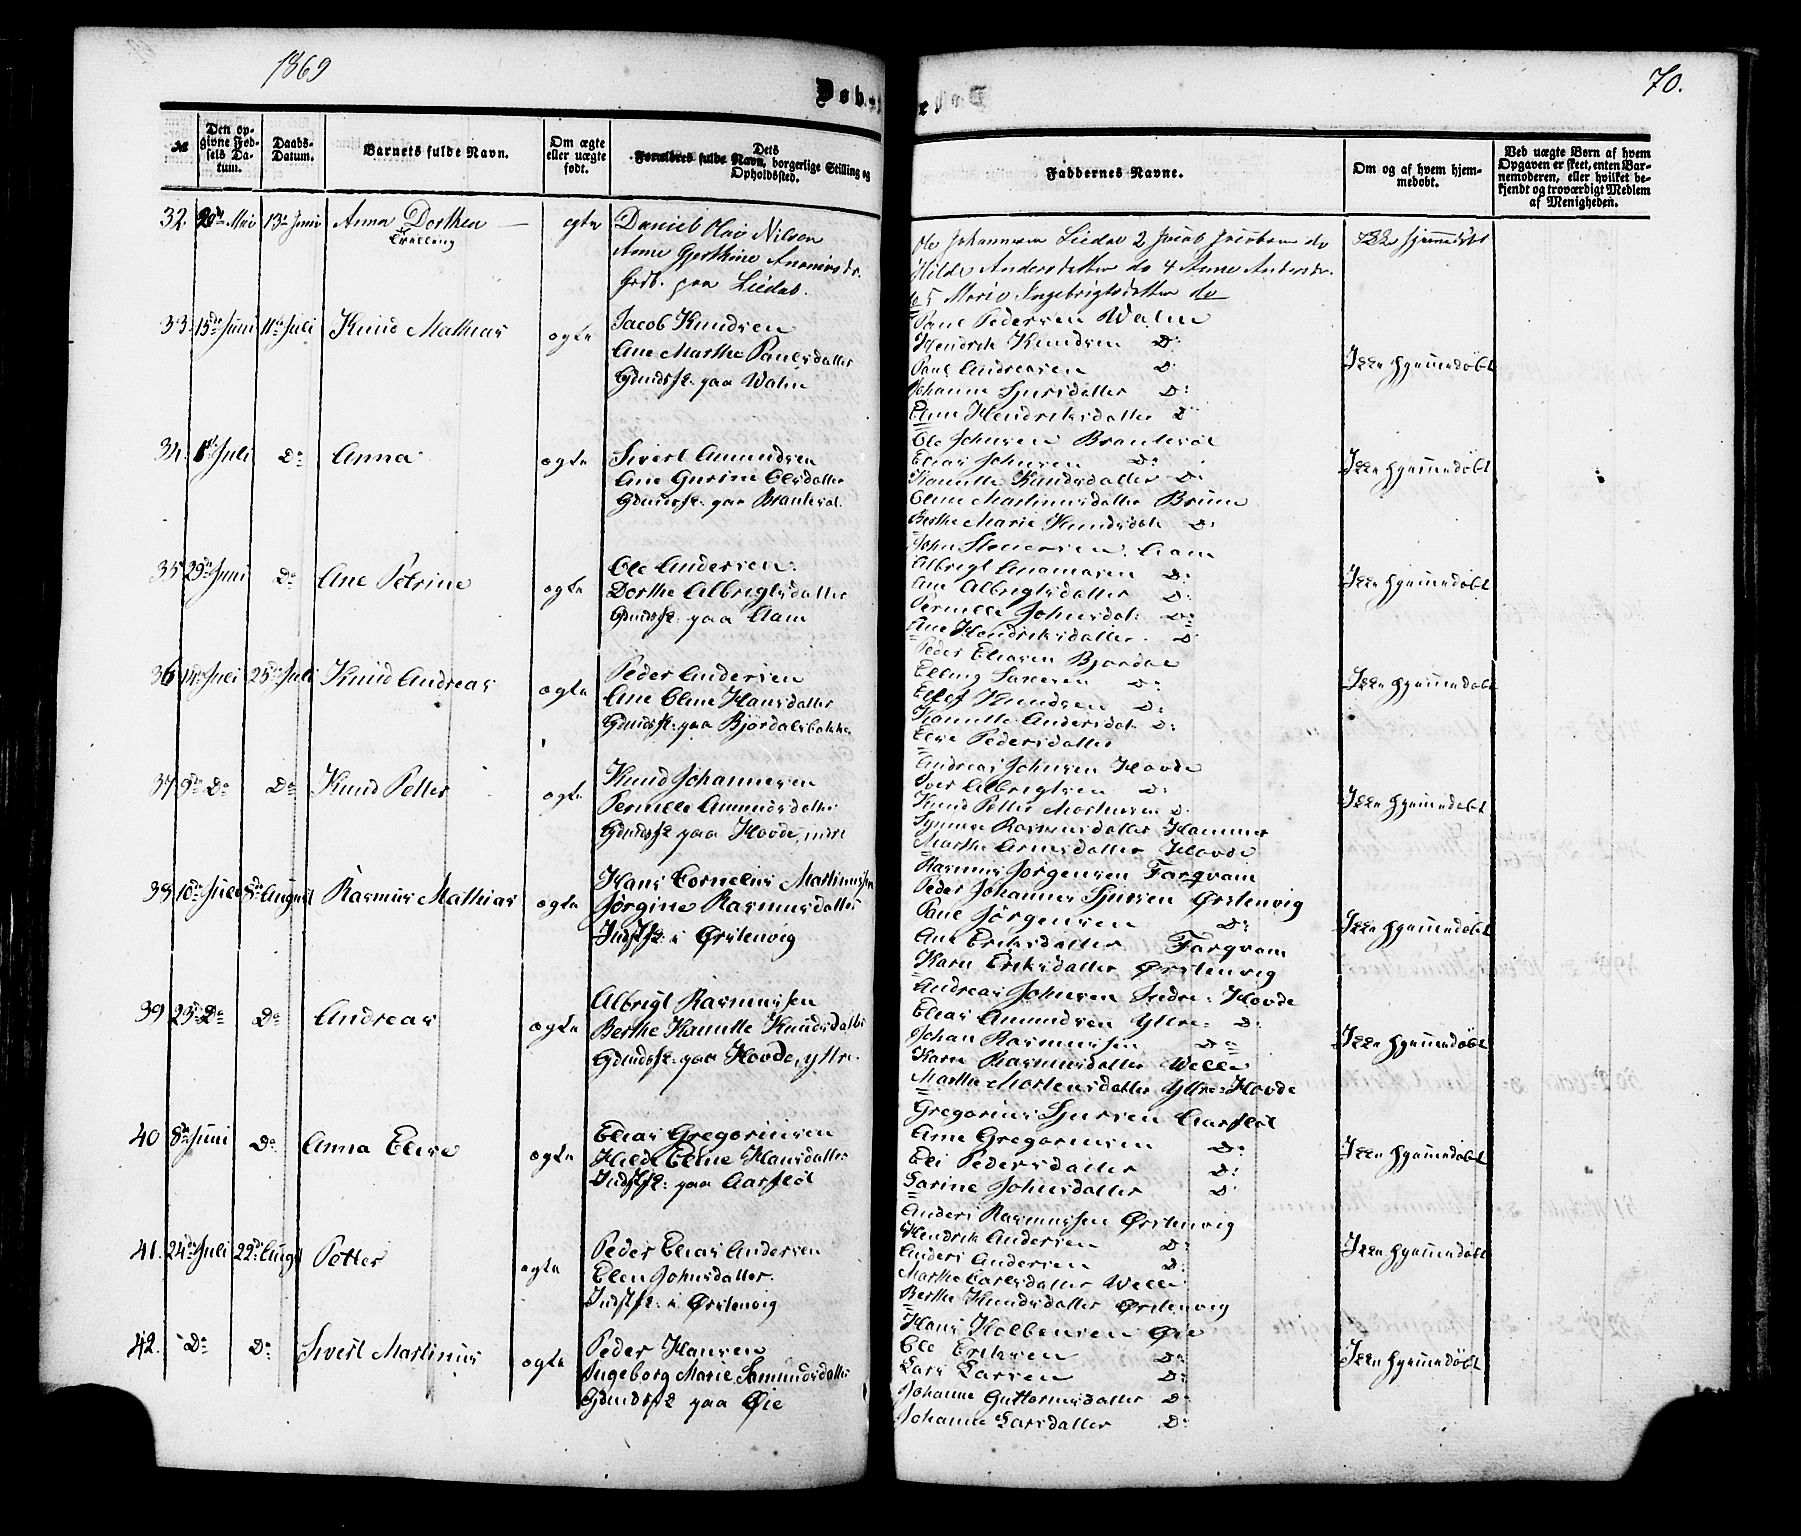 1869
70.
Døbte
№
Den opgivne Fødsels Datum.
Daabs-Datum.
Barnets fulde Navn.
Om ægte eller uægte født.
Forældres fulde Navn, borgerlige Stilling og Dets Opholdssted.
Faddernes Navne.
Om og af hvem hjemmedøbt.
Ved uægte Børn af hvem Opgaven er skeet, enten Barnemoderen, eller hvilket bekjendt og troværdigt Medlem af Menigheden.
32. Mai 13de Juni Anna Dorthea ægte
Daniel Olai Nilsen
paa Liedal.
Ole Johannesen Liedal 2 Jacob Jacobsen do
Hilde Andersdatter do 4 Anne Andersdr.
5 Marie Ingebrigtsdatter do
Ikke hjemmedøbt
33. 15de Juni 11te Juli Knud Mathias ægte
Jacob Knudsen
Ane Marthe Paulsdatter
Gdmdsfk. paa Watne
Paul Pedersen Watne
Hendrik Knudsen D:
Paul Andreasen D:
Johanne Sjursdatter D:
Eline Hendriksdatter D:
Ikke hjemmedøbt
34. 1ste Juli Do Anna ægte
Sivert Amundsen
Ane Gurine Olsdatter
Gdmdsfk. paa Brautesæt
Ole Johnsen Brautesæt
Elias Johnsen D:
Hanutte Knudsdatter D:
Oline Martinusdatter Brune
Berthe Marie Knudsdat. D:
Ikke hjemmedøbt
35 29de Juni Do Ane Petrine ægte
Ole Andersen
Dorthe Albrigtsdatter
Gdmdsfk. paa Aam
John Steffensen Aam
Albrigt Aanonsen D:
Ane Albrigtsdatter D:
Pernille Johnsdat. D:
Ane Hendriksdatter D:
Ikke hjemmedøbt
36 14de Juli 25de Juli Knud Andreas ægte
Peder Andersen
Ane Oline Hansdatter
Gdmdsfk. paa Bjørdalsbakke
Peder Eliasen Bjørdal
Elling Larsen D:
Ellef Knudsen D:
Hanutte Andersdat. D:
Else Pedersdatter
Ikke hjemmedøbt
37 9de Do Do Knud Petter ægte
Knud Johannesen
Pernille Amundsdatter
Gdmdsfk paa Hovde, indre
Andreas Johnsen Hovde
Iver Albrigtsen D:
Knud Petter Mortensen D:
Synneve Rasmusdatter Hammer
Marthe Arnesdatter Hovde
Ikke hjemmedøbt
38 10de Juli 8de August Rasmus Mathias ægte
Hans Cornelius Martinussen
Jørgine Rasmusdatter
Indstfk. i Ørstenvig
Rasmus Jørgensen Færqvam
Peder Johannes Sjursen Ørstenvig
Paul Jørgensen D:
Ane Eriksdatter Færqvam
Karn Eriksdatter Ørstenvig
Ikke hjemmedøbt
39 25de Do Do Andreas ægte
Albrigt Rasmussen
Berthe Hanutte Knudsdatter
Gdmdsfk. paa Hovde, yttre.
Andreas Johnsen Indre Hovde
Elias Amundsen Yttre D:
Johan Rasmussen D:
Karn Rasmusdatter Welle
Marthe Mortensdatter Yttre Hovde
Ikke hjemmedøbt
40 8de Juni Do Anna Elise ægte
Elias Gregoriussen
Hilde Eline Hansdatter
Indstfk: paa Aarflot
Gregorius Sjursen Aarflot
Arne Gregoriusen D:
Eli Pedersdatter D:
Sarine Johnsdatter D:
Ikke hjemmedøbt
41. 24de Juli 22de August Petter ægte
Peder Elias Andersen
Elen Johnsdatter.
Indstfk: i Ørstenvig
Anders Rasmussen Ørstenvig
Hendrik Andersen D:
Anders Andersen D.
Marthe Carlsdatter Welle
Berthe Knudsdatter Ørstenvig
Ikke hjemmedøbt
42. Do Do Sivert Martinus ægte
Peder Hansen
Ingeborg Marie Samundsdatter
Gdmdsfk paa Øie
Hans Kolbensen Øie
Ole Eriksen D:
Lars Larsen D:
Johanne Guttormsdatter D:
Johanne Larsdatter D:
Ikke hjemmedøbt